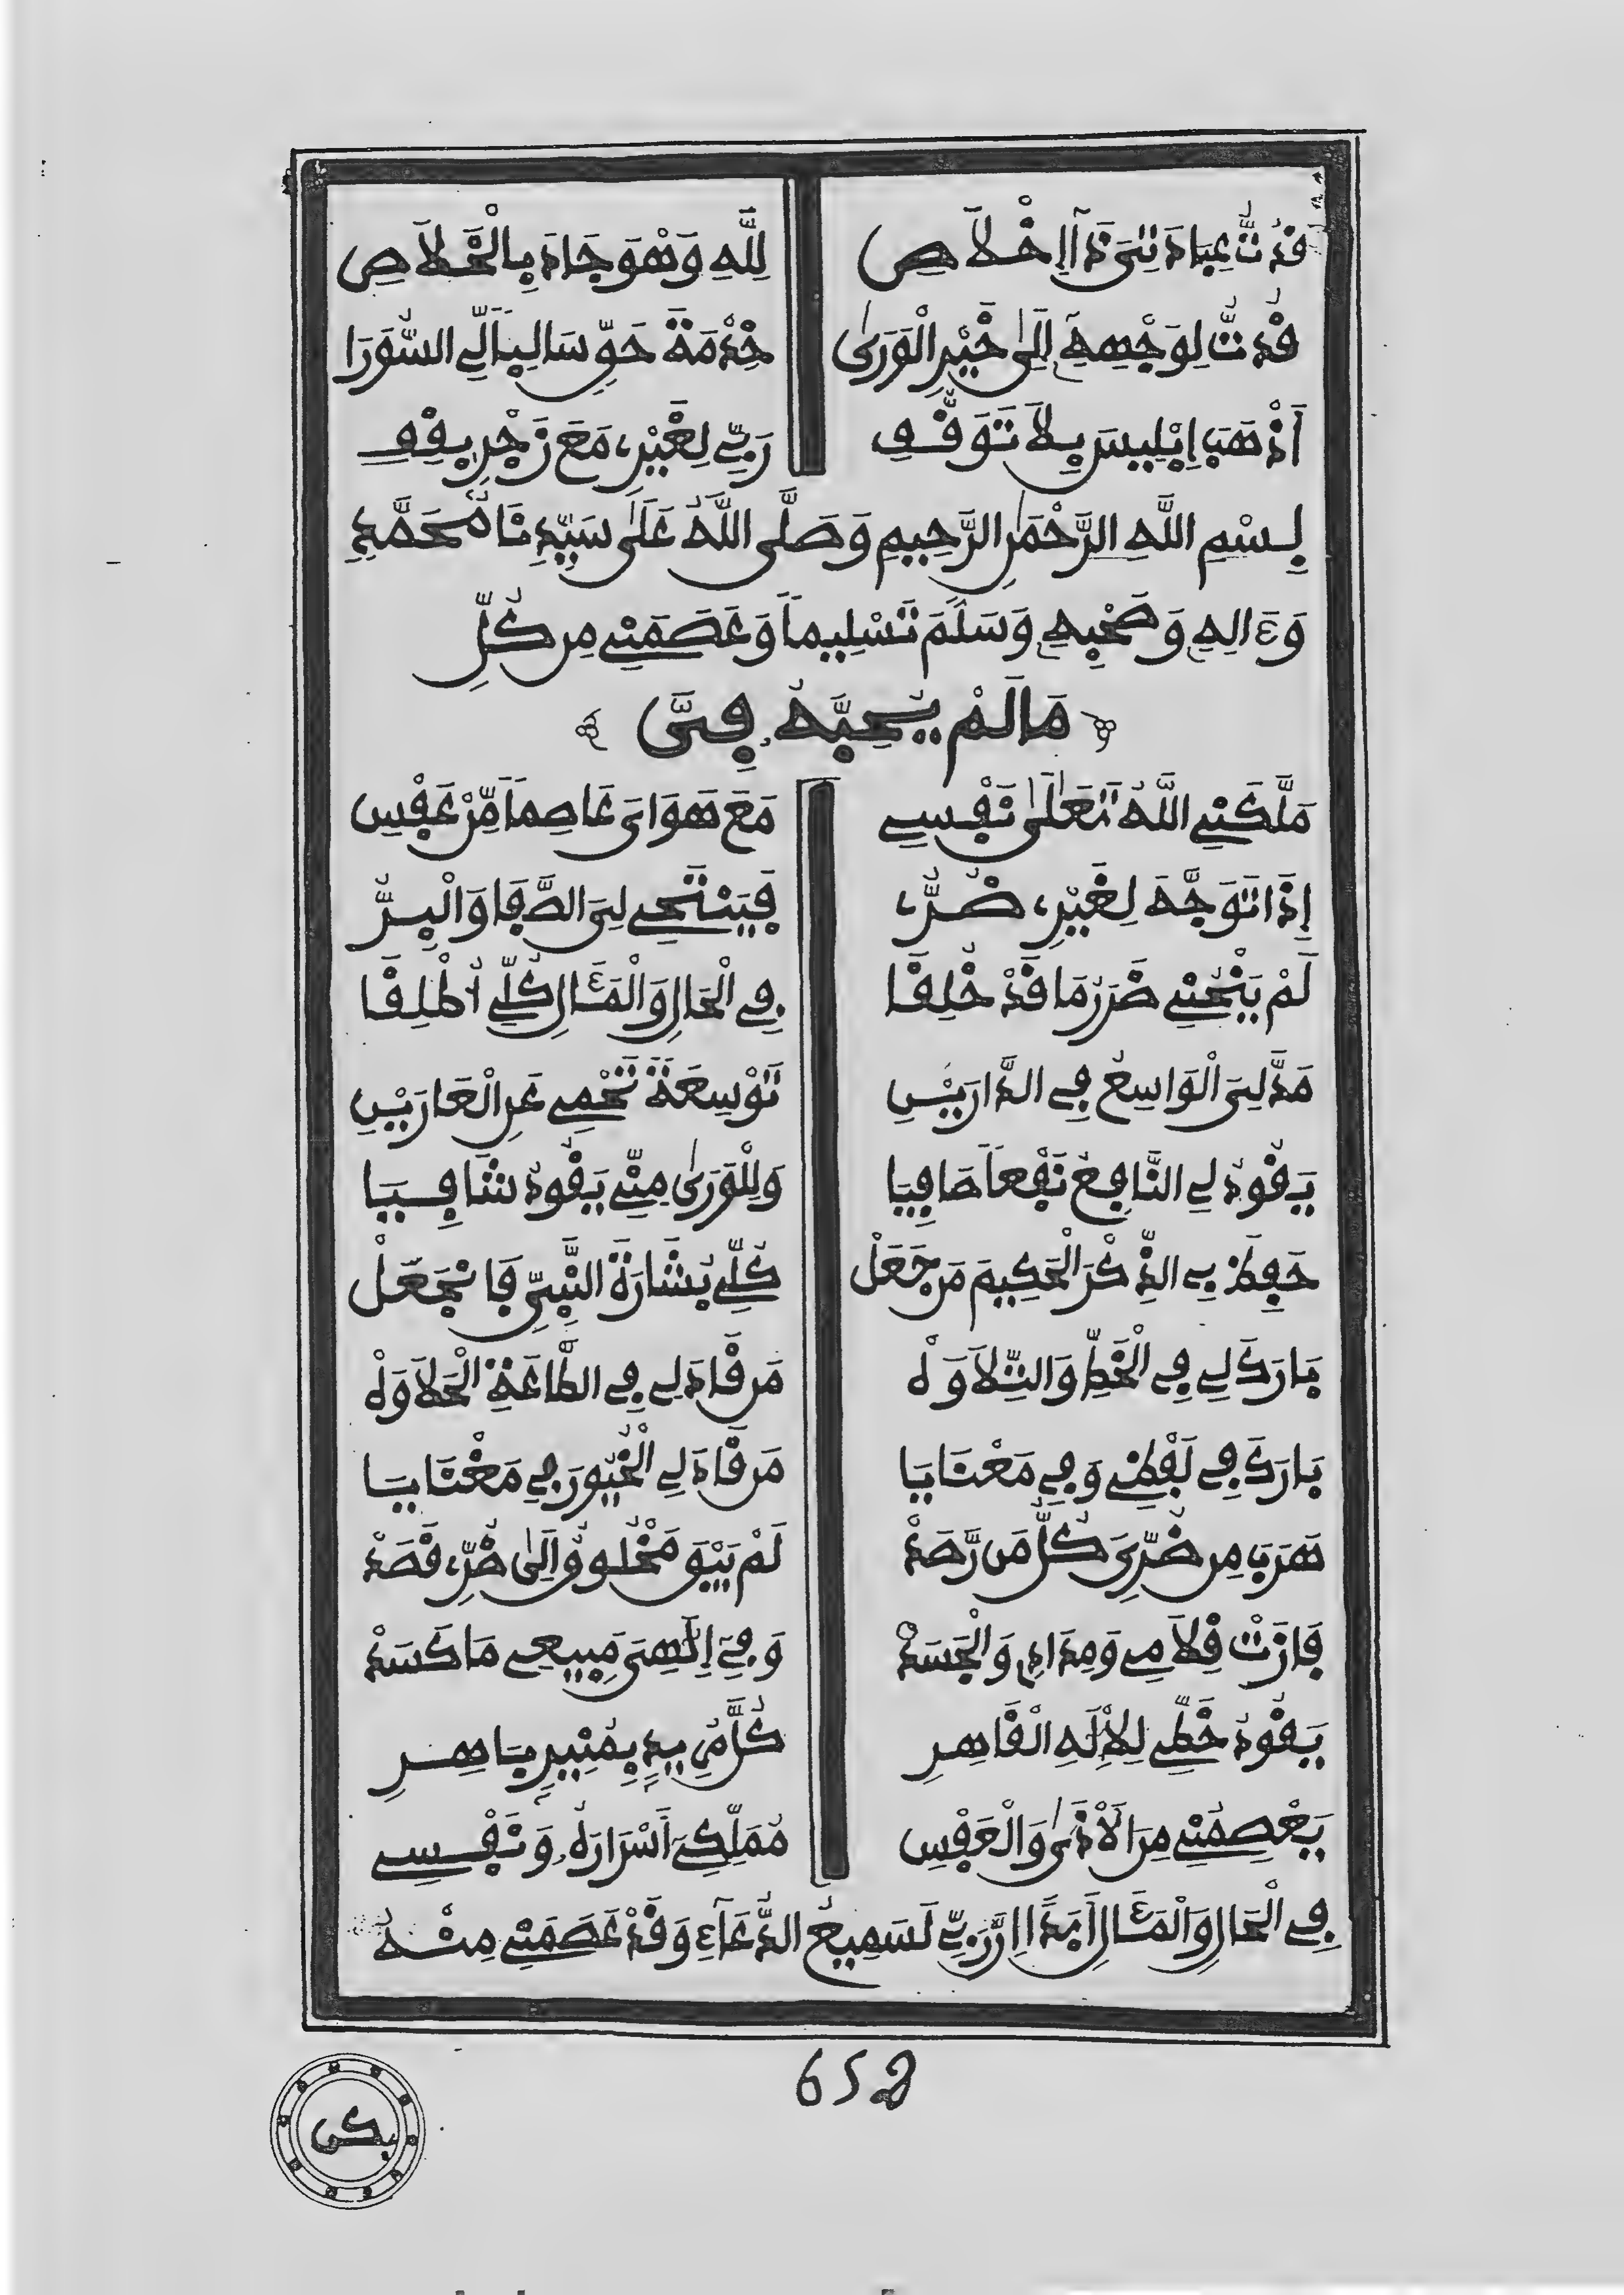 قُدتُّ عِبَادَتِىَ ذَا إِخْلَاصِ لِلَّهِ وَهْوَ جَادَ بِالْخَلَاصِ
قُدتُّ لِوَجْهِهِ إِلَىٰ خَيْرِ الْوَرَىٰ خِدْمَةَ حَقٍّ سَالِباً لِّى السُّوَرَا
أَذْهَبَ إِبْلِيسَ بِلَا تَوَقُّفِ رَبِّى لِغَيْرِ مَعَ زَجْرٍ يَقِفِ
بِسْمِ اللَّهِ الرَّحْمَٰنِ الرَّحِيمِ وَصَلَّى اللَّهُ عَلَىٰ سَيِّدِنَا مُحَمَّدٍ
وَءَالِهِ وَصَحْبِهِ وَسَلَّمَ تَسْلِيماً وَعَصَمَنِى مِن كُلِّ
مَا لَمْ يُحِبَّهُ فِىَّ
مَلَّكَنِى اللَّهُ تَعَالَىٰ نَفْسِى مَعَ هَوَاىَ عَاصِماً مِّنْ عَفْسِ
إِذَا تَوَجَّهَ لِغَيْرِ ضُرُّ فَيَنْتَحِى لِىَ الصَّفَا وَالْبِرُّ
لَمْ يَنْحُنِى ضَرَرُ مَا قَدْ خُلِقَا فِى الْحَالِ وَالْمَئَالِ كُلِّى أُطْلِقَا
مَدَّ لِىَ الْوَاسِعُ فِى الدَّارَيْنِ تَوْسِعَةً تَحْمِى عَنِ الْعَارَيْنِ
يَقُودُ لِى النَّافِعُ نَفْعاً صَافِيَا وَلِلْوَرَىٰ مِنِّى يَقُودُ شَافِيَا
حَفِظَ بِى الذِّكْرَ الْحَكِيمَ مَن جَعَلْ كُلِّى بُشَارَةَ النَّبِىِّ فَانْجَعَلْ
بَارَكَ لِى فِى الْخَطِّ وَالتِّلَاوَهْ مَن قَادَ لِى فِى الطَّاعَةِ الْحَلَاوَهْ
بَارَكَ فِى لَفْظِى وَفِى مَعْنَايَا مَن قَادَ لِى الْخُيُورَ فِى مَغْنَايَا
هَرَبَ مِن ضُرِّىَ كُلُّ مَن رَّصَدْ لَمْ يَبْقَ مَخْلُوقٌ إِلَىٰ ضُرِّ قَصَدْ
فَازَتْ قِلَامِى وَمِدَادِ وَالْجَسَدْ وَفِىَ إِلَٰهِىَ مَبِيعِى مَا كَسَدْ
يَقُودُ خَطِّى لِلْإِلَٰهِ الْقَاهِرِ كُلَّ مُرِيدٍ بِمُنِيرٍ بَاهِرِ
يَعْصِمُنِى مِنَ الْأَذَىٰ وَالْعَفْسِ مُمَلِّكِى أَسْرَارَهُ وَنَفْسِى
فِى الْحَالِ وَالْمَئَالِ أَبَداً إِنَّ رَبِّى لَسَمِيعُ الدُّعَاءِ وَقَدْ عَصَمَنِى مِنْهُ
652
بكى